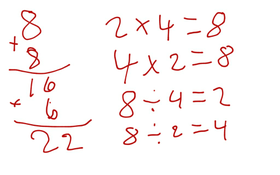 8
+
8
16
+
6
22
2 × 4 = 8
4 × 2 = 8
8 ÷ 4 = 2
8 ÷ 2 = 4